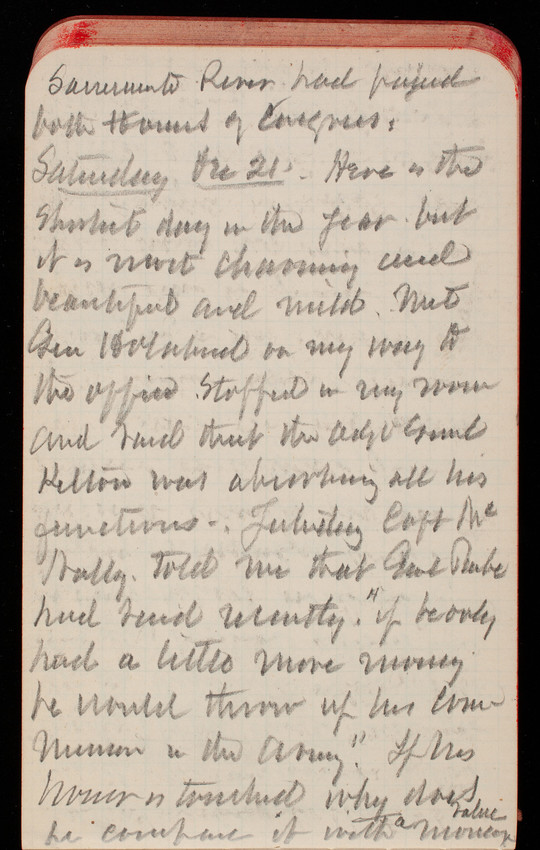 Sacramento River had passed
both Houses of Congress.
Saturday Dec 21. Here is the
shortest day in the year but
it is most charming and
beautiful and mild. Met
Gen Holabird on my way to
the office. Stopped in my room
and said that the Adjt Genl
Kelton was absorbing all his
functions -. Yesterday Capt Mc
Nally. told me that Genl
had said recently. "if he only
had a little more money
he would throw up his Com
mission in the Army". If his
honor is touched why does
he compare it with a money
value